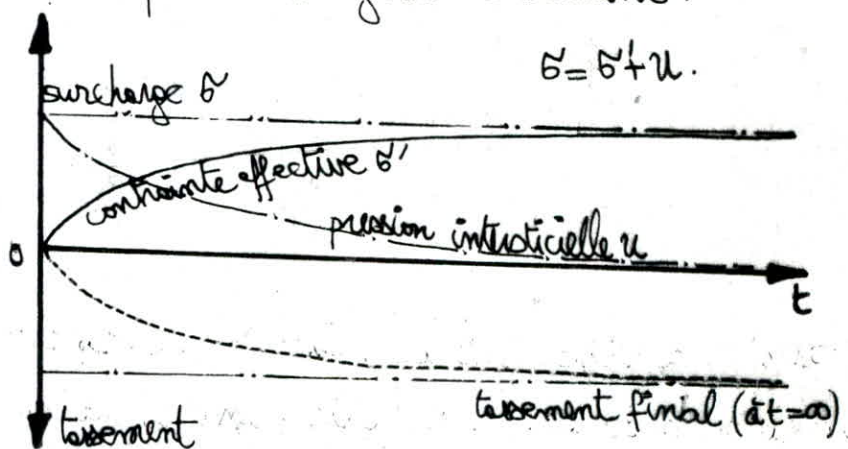 σ = σ' + u.
surcharge σ
contrainte effective σ'
pression intersticielle u
0
t
tassement final (à t=∞)
tassement